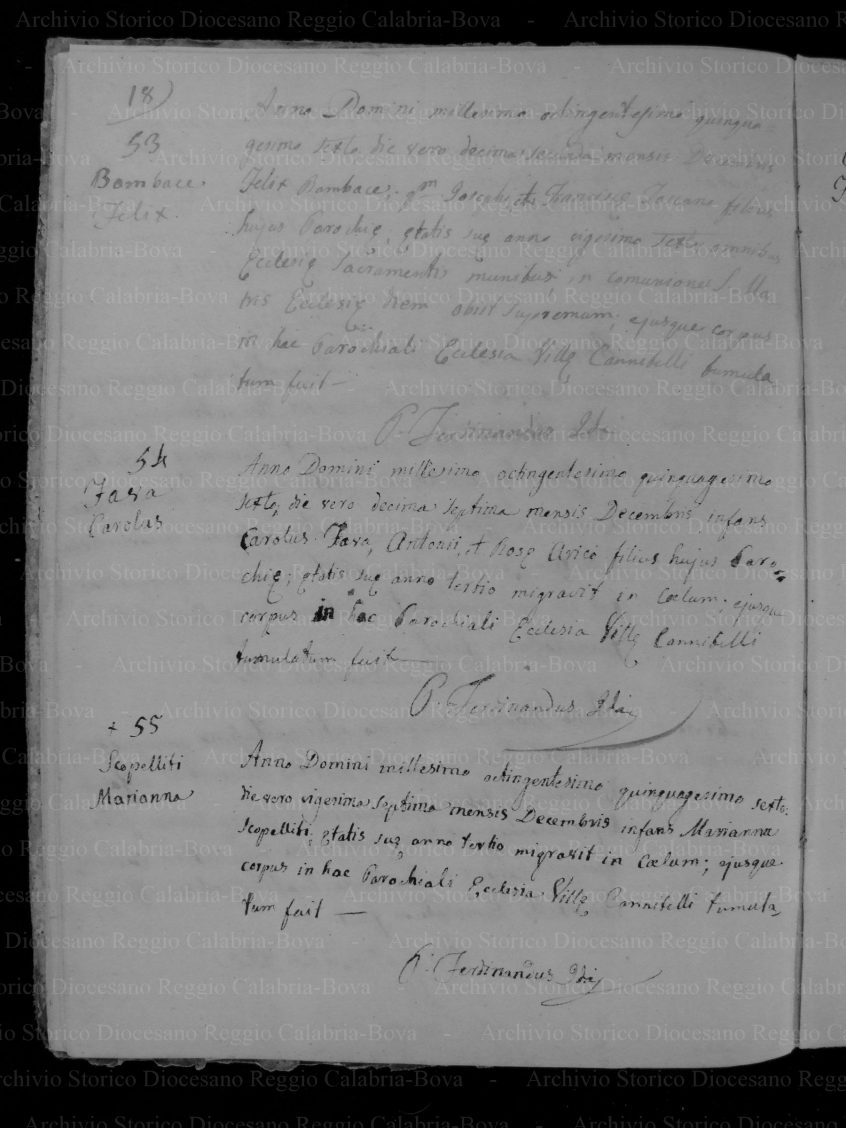 18)
53
Bambace
Felix
Anno Domini millesimo octingentesimo quinqua
gesimo sexto, die vero decima secunda mensis Decembris
Felix Bambace, qm Joseph, et Francisce Toscano filius
hujus Parochię, ętatis suę anno vigesimo sexto, omnibus
Ecclesię Sacramentis munibus, in comunione S. Ma
tris Ecclesię diem obiit supremum; ejusque corpus
in hac Parochiali Ecclesia Villę Cannitelli tumula
tum fuit —
P. Ferdinandus
54
Fava
Carolus
Anno Domini millesimo octingentesimo quinquagesimo
sexto, die vero decima septima mensis Decembris, infans
Carolus Fava, Antonii, et Rosę Aricò filius hujus Paro
chię; ętatis suę anno tertio migravit in Cœlum; ejusque
corpus in hac Parochiali Ecclesia Villę Cannitelli
tumulatum fuit —
P. Ferdinandus
+ 55
Scopelliti
Marianna
Anno Domini millesimo octingentesimo quinquagesimo sexto
die vero vigesima septima mensis Decembris infans Marianna
Scopelliti, ętatis suę anno tertio migravit in Cœlum; ejusque
corpus in hac Parochiali Ecclesia Villę Cannitelli tumula
tum fuit —
P. Ferdinandus
Archivio Storico Diocesano Reggio Calabria-Bova